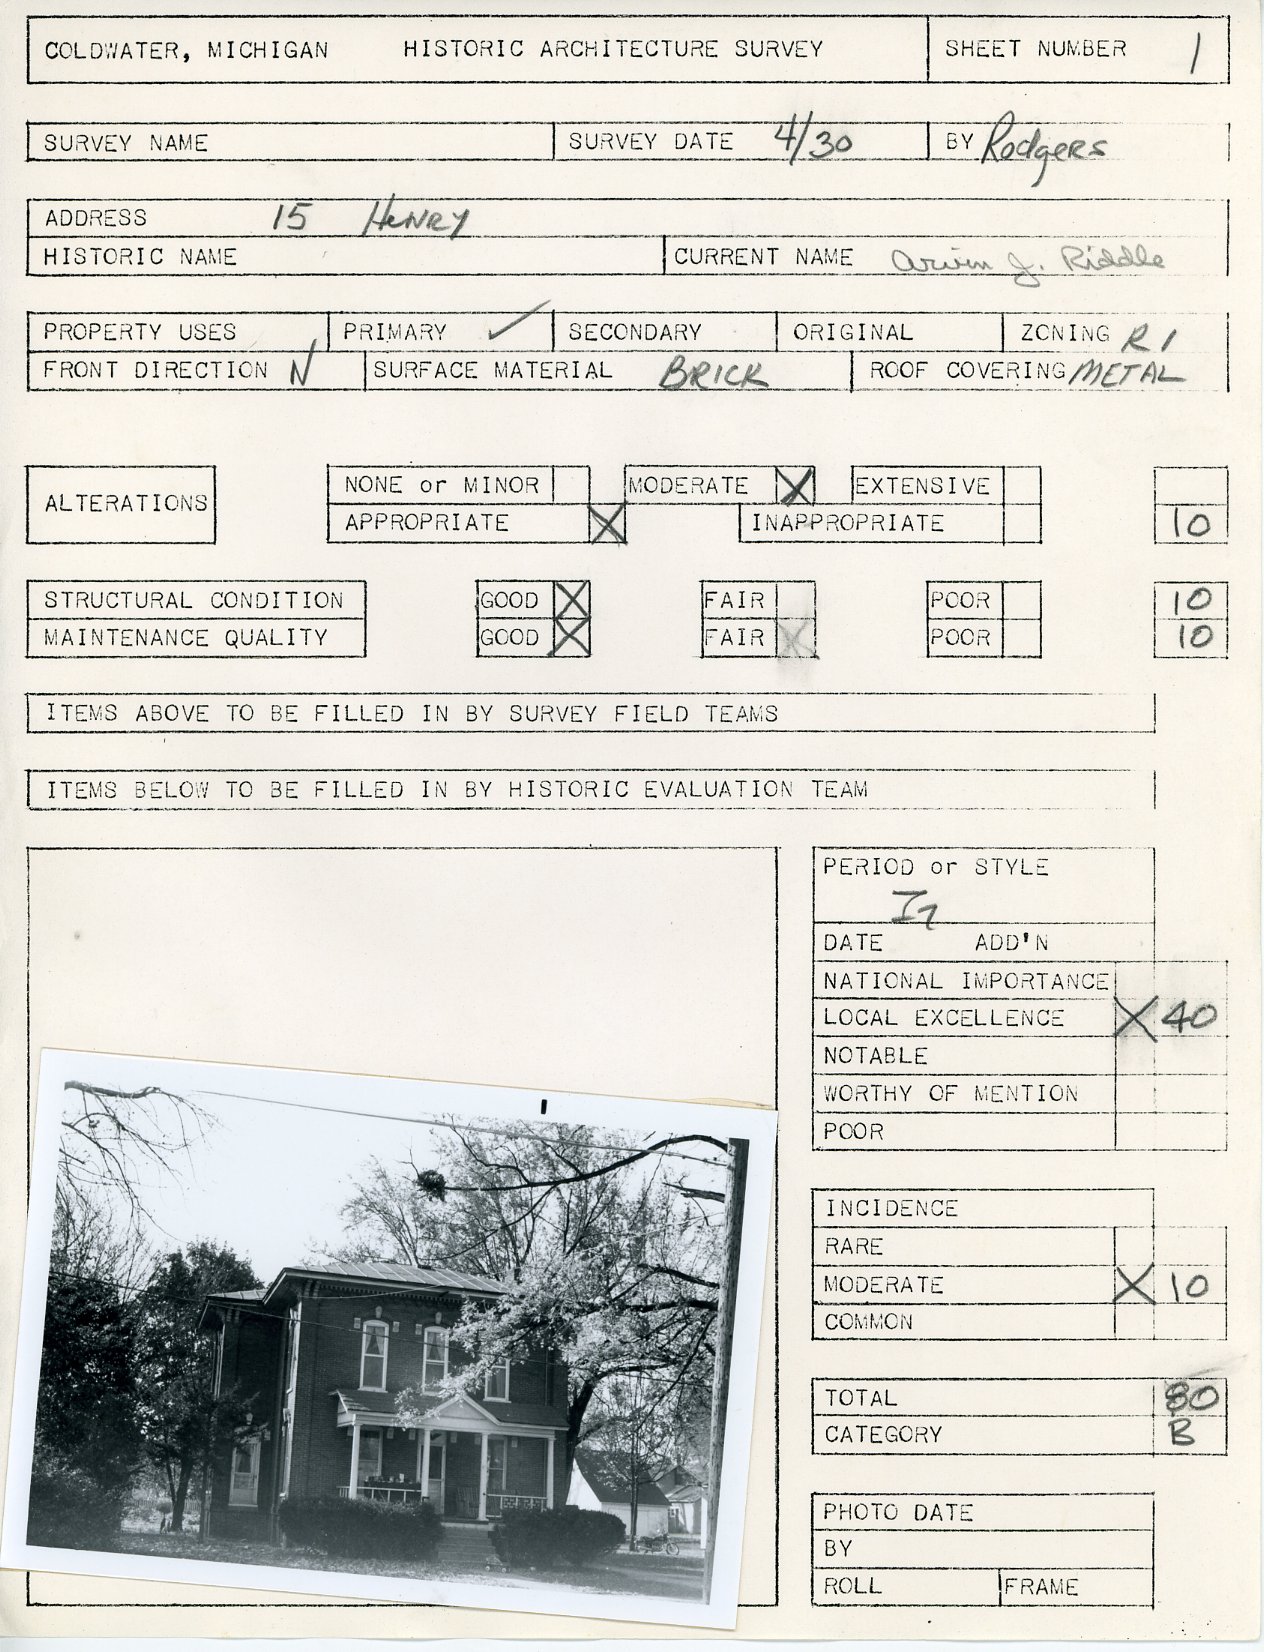 COLDWATER, MICHIGAN HISTORIC ARCHITECTURE SURVEY SHEET NUMBER 1
SURVEY NAME SURVEY DATE 4/30 BY Rodgers
ADDRESS 15 HENRY
HISTORIC NAME CURRENT NAME Arvin J. Riddle
PROPERTY USES PRIMARY ✓ SECONDARY ORIGINAL ZONING R1
FRONT DIRECTION N SURFACE MATERIAL BRICK ROOF COVERING METAL
ALTERATIONS
NONE or MINOR MODERATE X EXTENSIVE
APPROPRIATE X INAPPROPRIATE 10
STRUCTURAL CONDITION GOOD X FAIR POOR 10
MAINTENANCE QUALITY GOOD X FAIR X POOR 10
ITEMS ABOVE TO BE FILLED IN BY SURVEY FIELD TEAMS
ITEMS BELOW TO BE FILLED IN BY HISTORIC EVALUATION TEAM
PERIOD or STYLE
DATE ADD'N
NATIONAL IMPORTANCE
LOCAL EXCELLENCE X 40
NOTABLE
WORTHY OF MENTION
POOR
INCIDENCE
RARE
MODERATE X 10
COMMON
TOTAL 80
CATEGORY B
PHOTO DATE
BY
ROLL FRAME